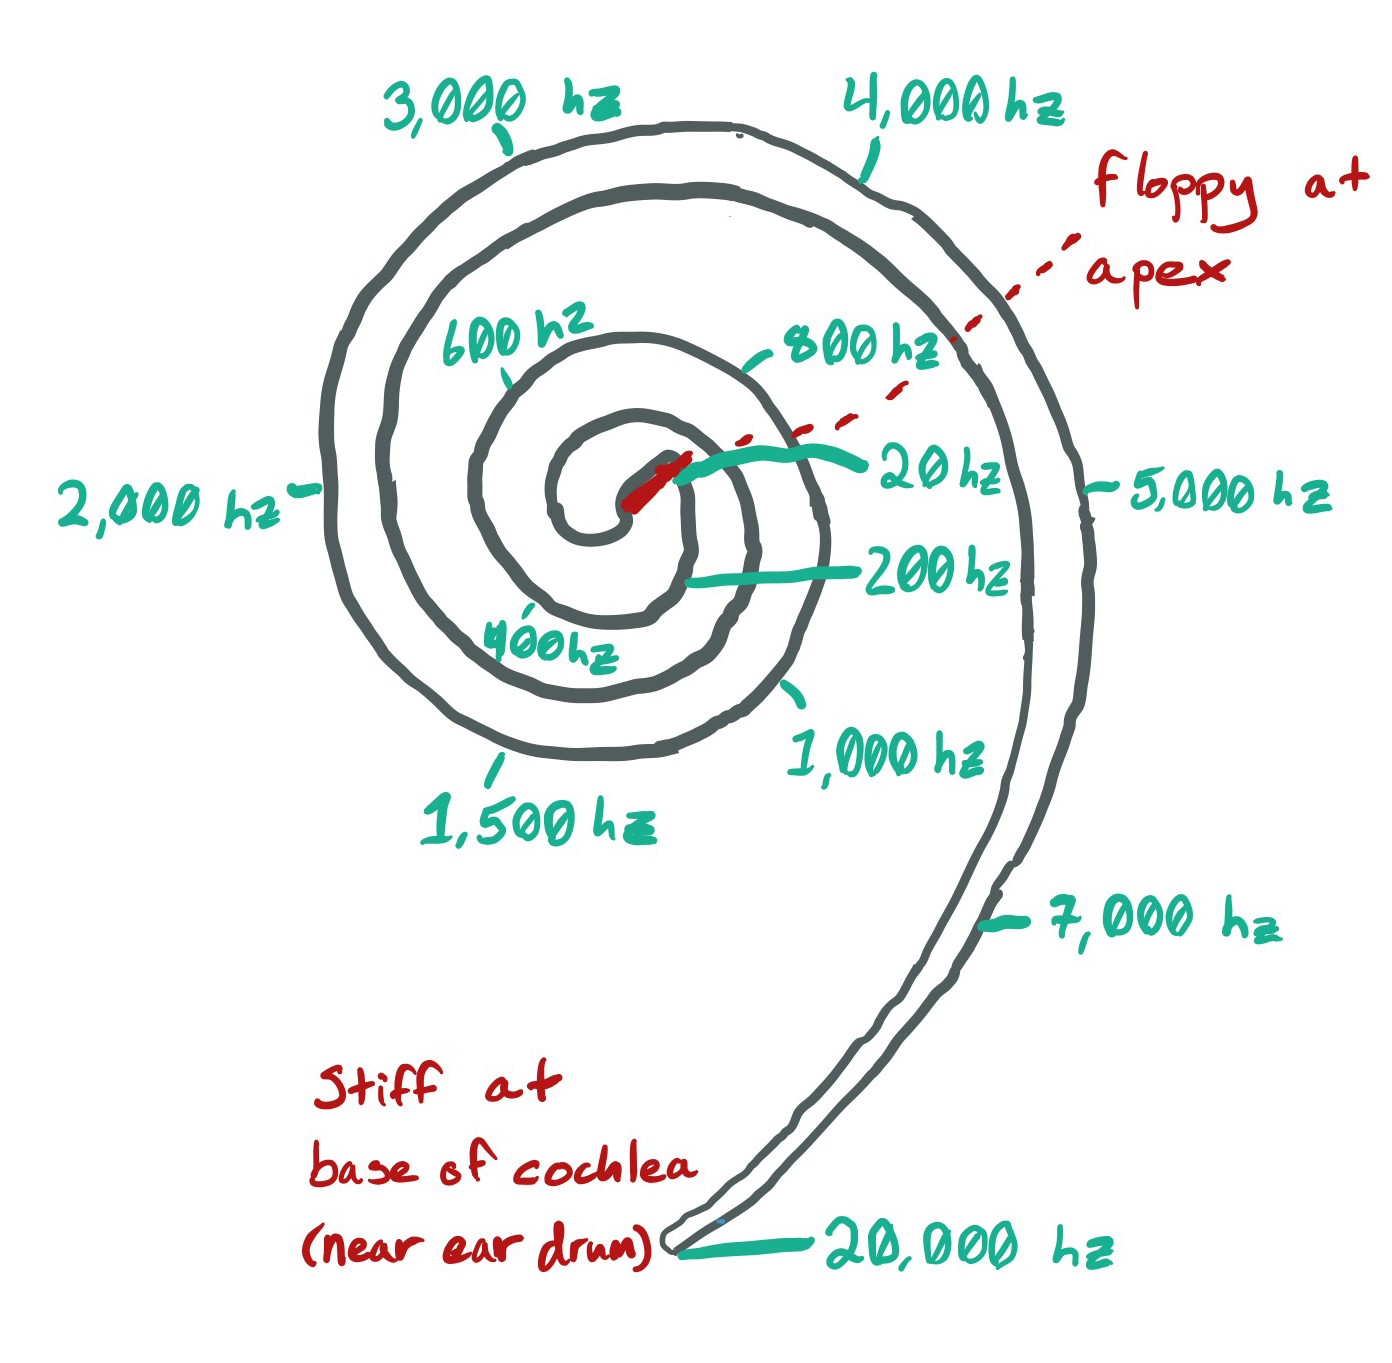 3,000 hz
4,000 hz
floppy at
apex
600 hz
800 hz
20 hz
2,000 hz
5,000 hz
200 hz
400hz
1,000 hz
1,500 hz
7,000 hz
Stiff at
base of cochlea
(near ear drum)
20,000 hz